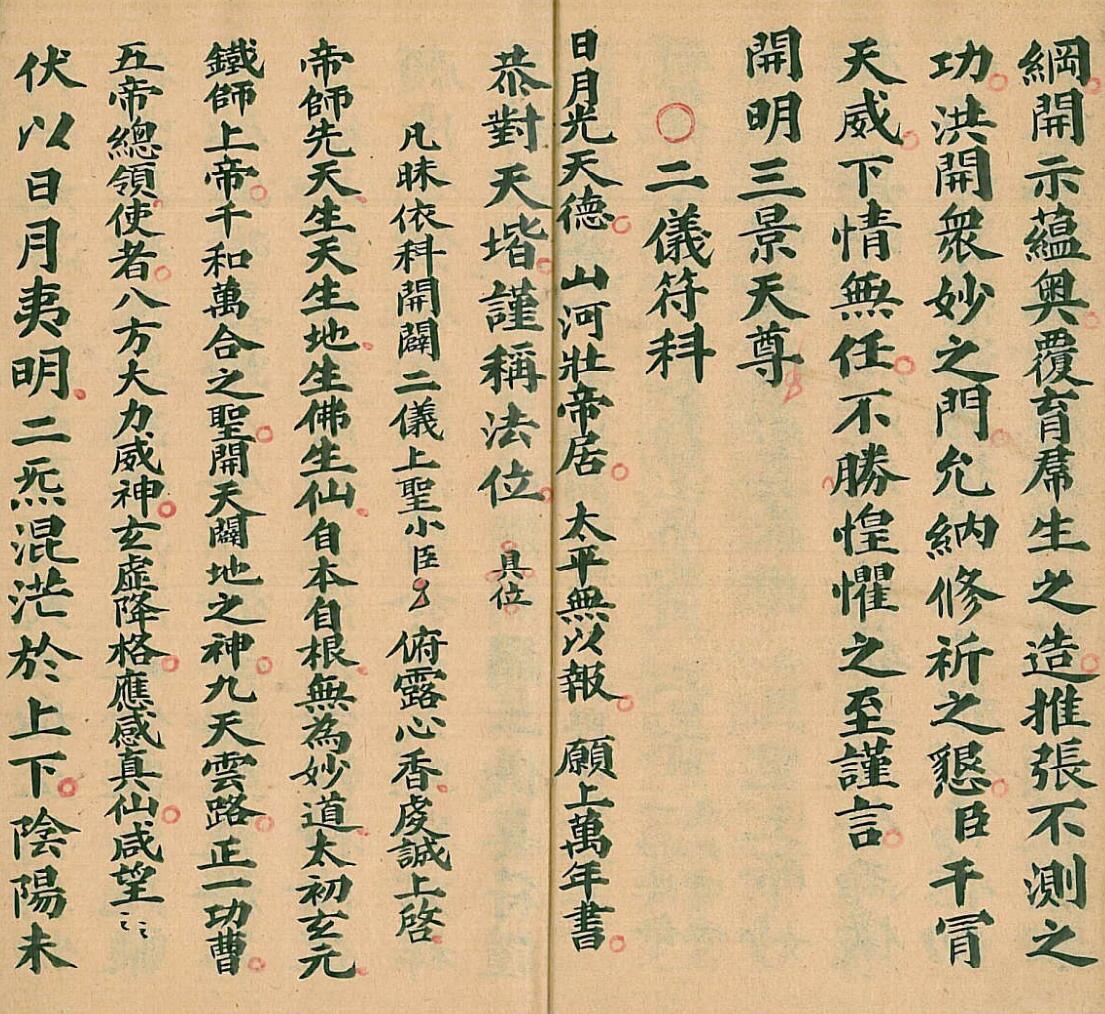 綱開示蘊奧覆育羣生之造推張不測之
功洪開衆妙之門允納修祈之懇臣干冐
天威下情無任不勝惶懼之至謹言
開明三景天尊
〇二儀符科
日月光天德 山河壯帝居 太平無以報 願上萬年書
恭對天堦謹稱法位 具位
凡昧依科開闢二儀上聖小臣 俯露心香虔誠上啓
帝師先天生天生地生佛生仙自本自根無為妙道太初玄元
鐵師上帝千和萬合之聖開天闢地之神九天雲路正一功曹
五帝總領使者八方大力威神玄虛降格應感真仙咸望〻〻
伏以日月夷明二炁混茫於上下陰陽未